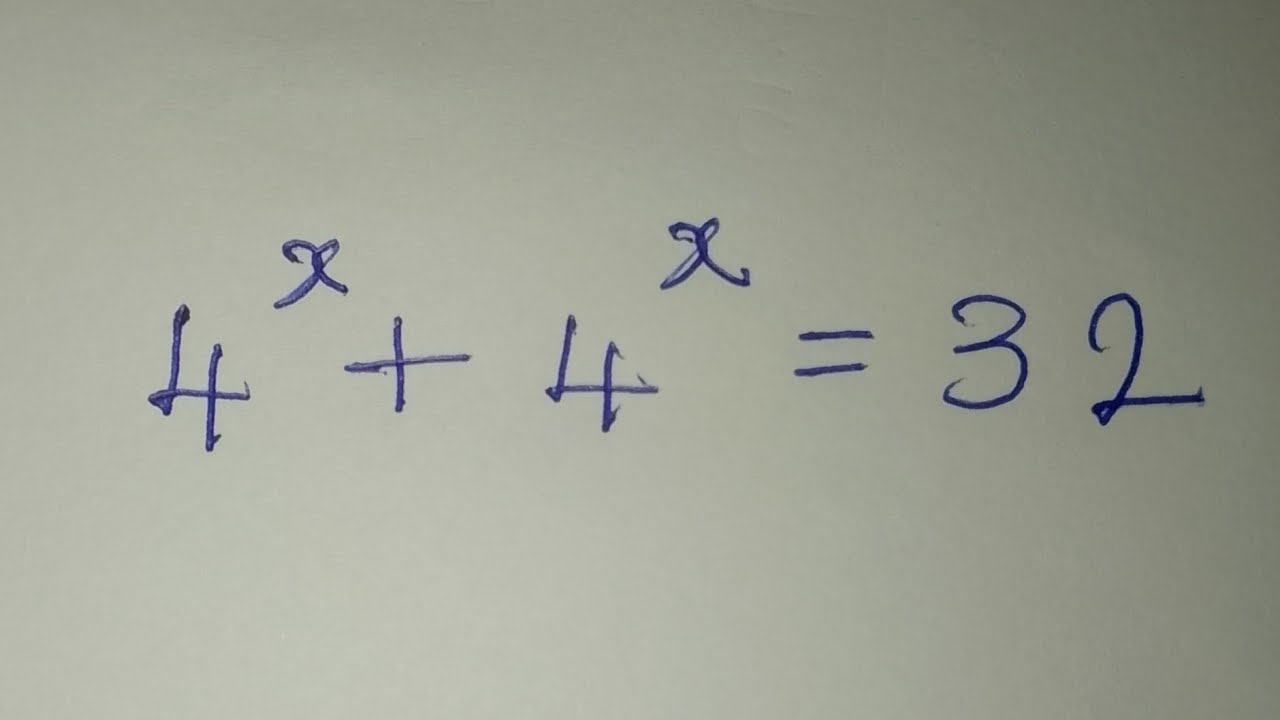 4ˣ + 4ˣ = 32